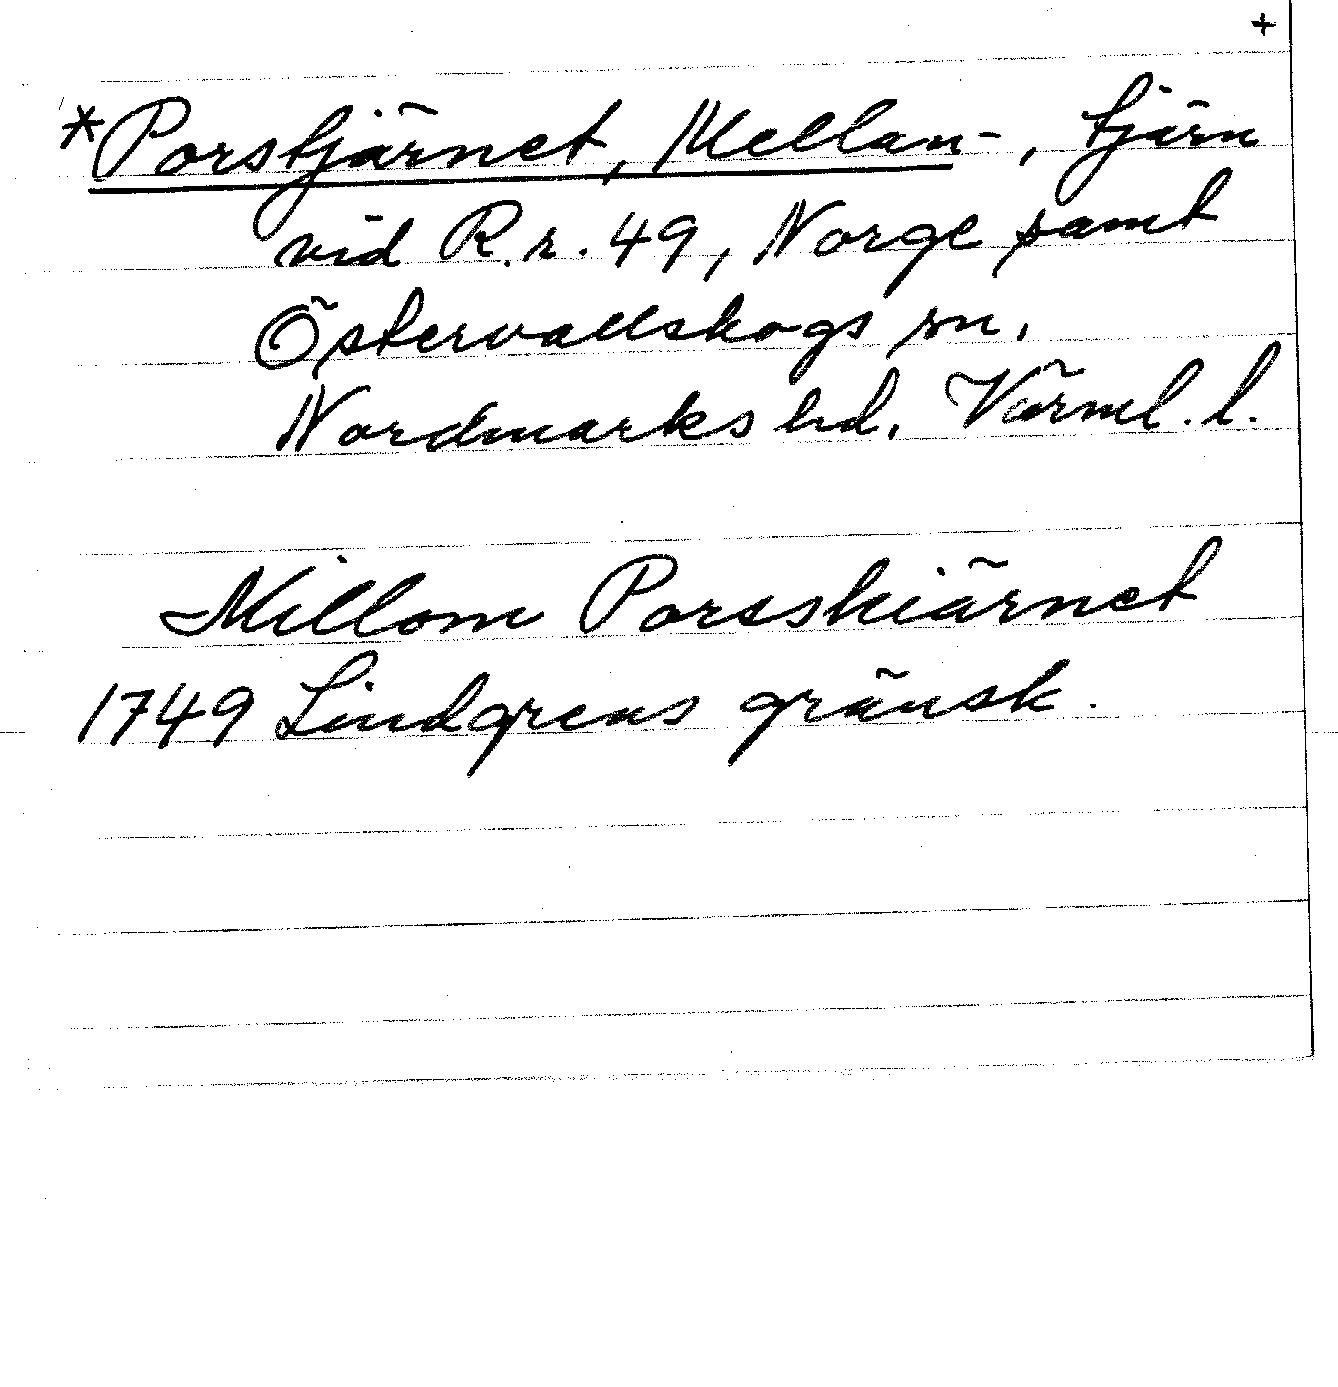 +
*Porstjärnet, Mellan-, tjärn
vid R.r. 49, Norge samt
Östervallskogs sn,
Nordmarks hd, Värml. l.
Millom Porsskiärnet
1749 Lindgrens gränsk.